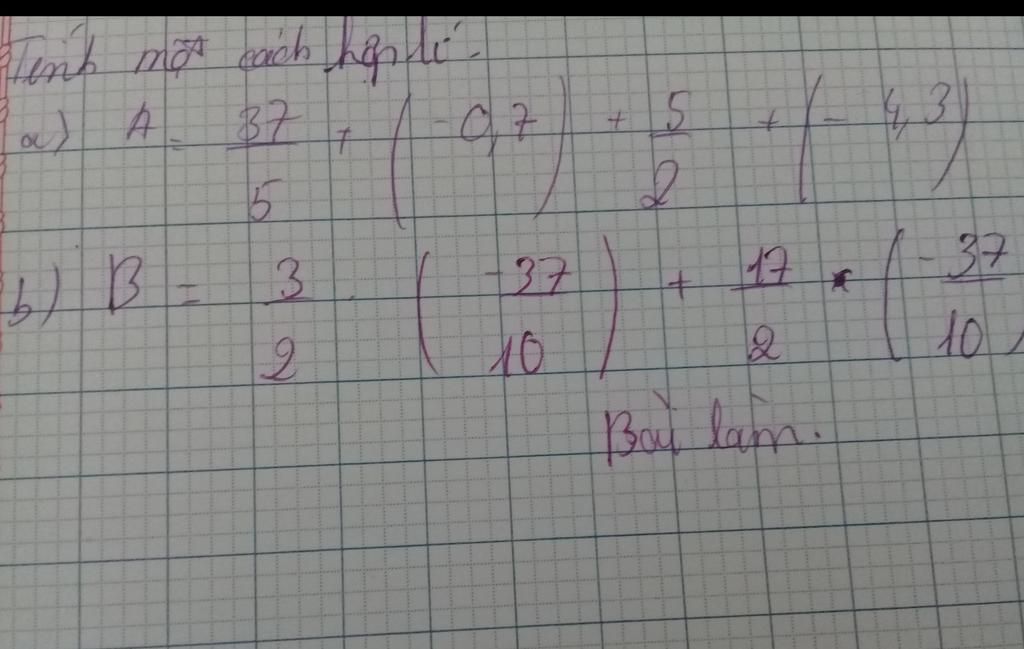 Tính một cách hợp lí.
a) A = 37/5 + (-0,7) + 5/2 + (-4,3)
b) B = 3/2 . (-37/10) + 17/2 . (-37/10)
Bài làm.